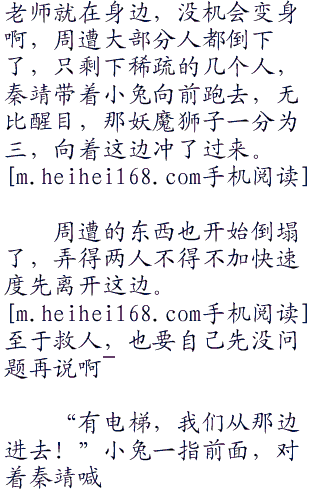 老师就在身边，没机会变身
啊，周遭大部分人都倒下
了，只剩下稀疏的几个人，
秦靖带着小兔向前跑去，无
比醒目，那妖魔狮子一分为
三，向着这边冲了过来。
[m.heihei168.com手机阅读]
周遭的东西也开始倒塌
了，弄得两人不得不加快速
度先离开这边。
[m.heihei168.com手机阅读]
至于救人，也要自己先没问
题再说啊¯
“有电梯，我们从那边
进去！”小兔一指前面，对
着秦靖喊